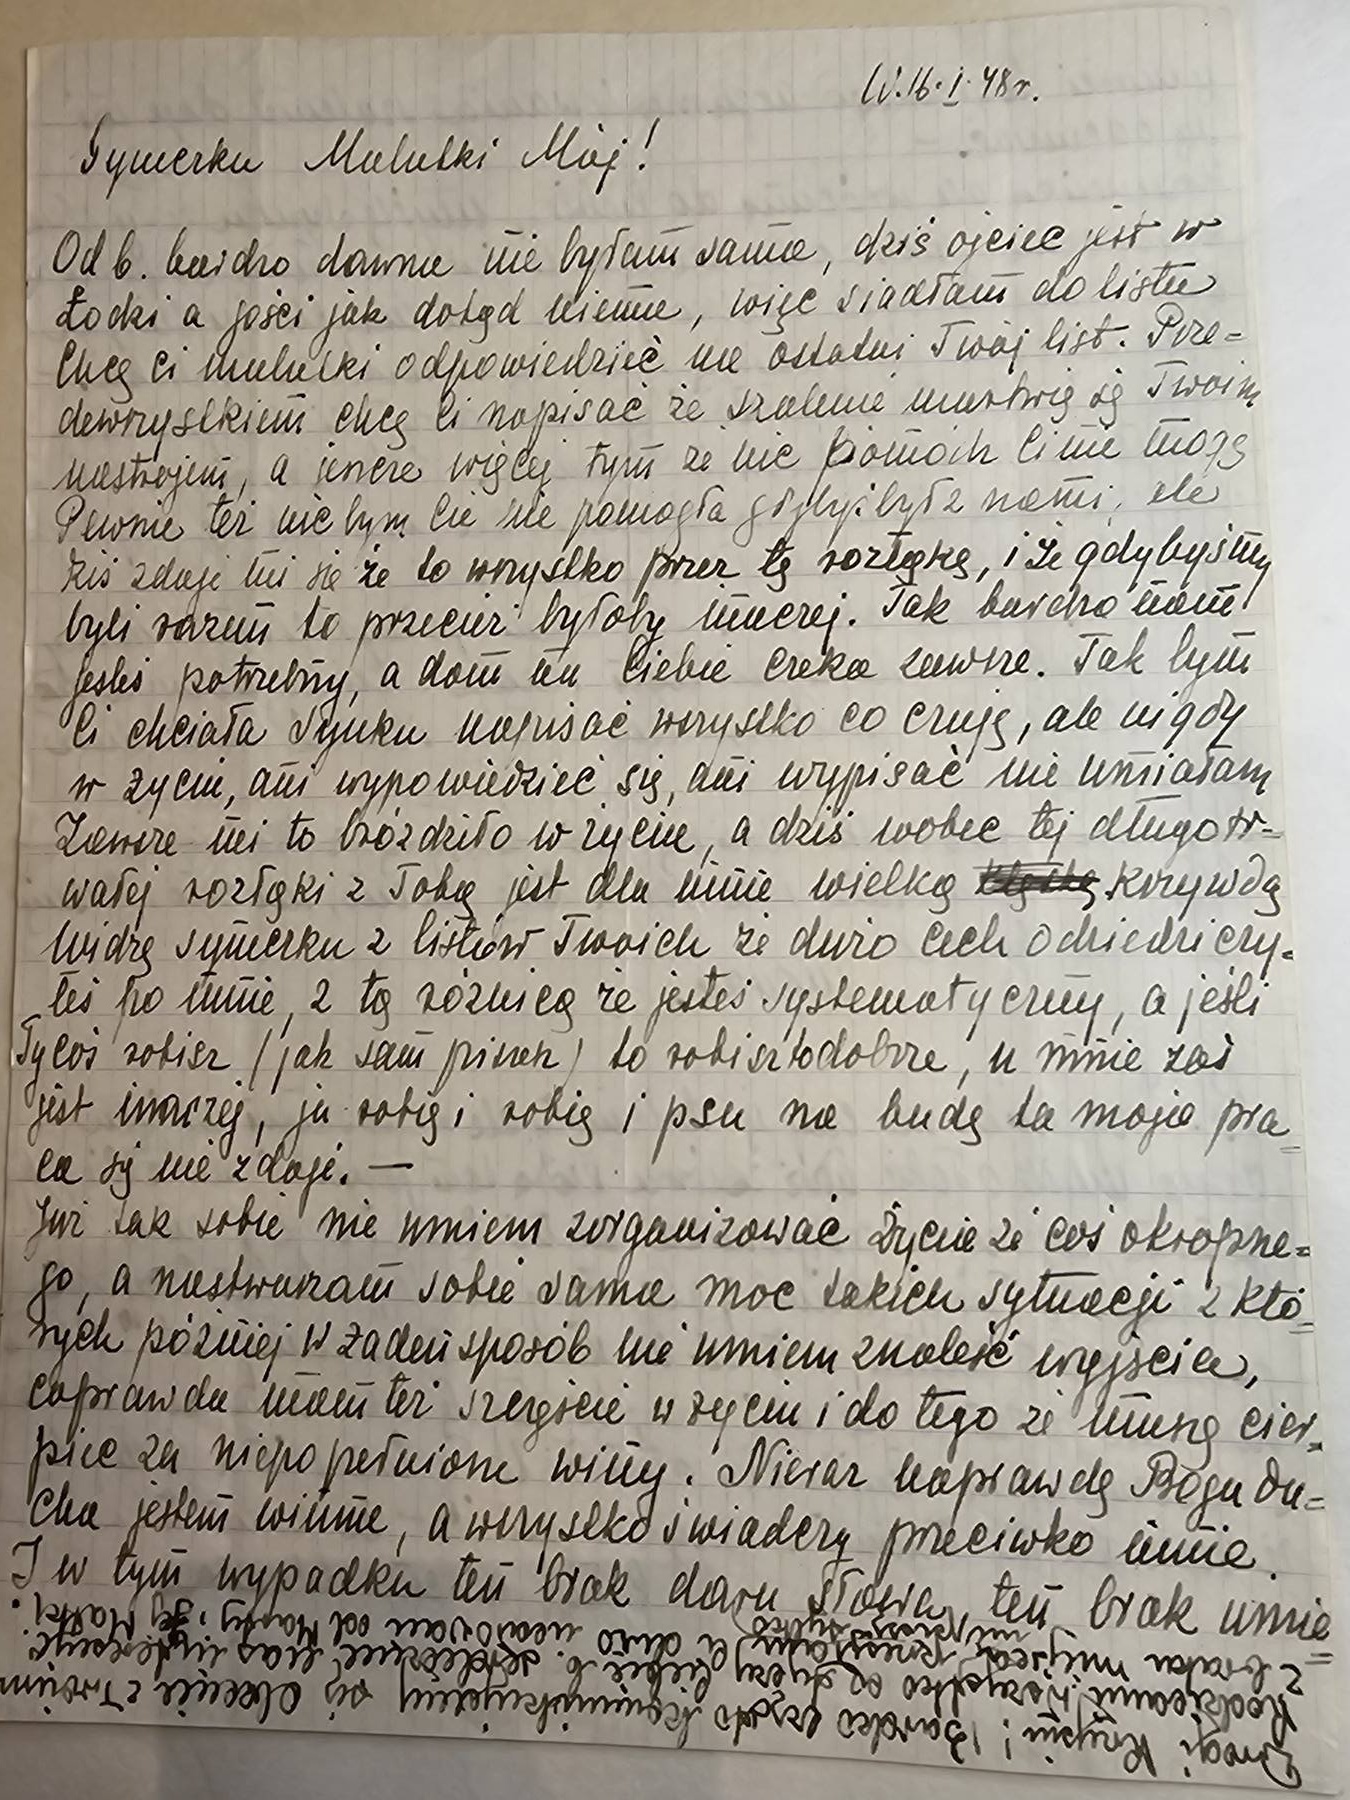 W. 16. I. 48 r.
Symerku Malutki Mój!
Od b. bardzo dawna nie byłam sama, dziś ojciec jest w
Łodzi a gości jak dotąd niema, więc siadłam do listu
Chcę Ci malutki odpowiedzieć na ostatni Twój list. Prze=
dewszystkiem chcę Ci napisać że szalenie martwię się Twoim
nastrojem, a jeszcze więcej tym że nic pomóc Ci nie mogę
Pewnie też nic bym Cie nie pomogła gdybyś był z nami, ale
dziś zdaje mi się że to wszystko przez tą rozłąkę, i że gdybyśmy
byli razem to przecież byłoby inaczej. Tak bardzo nam
jesteś potrzebny, a dom na Ciebie czeka zawsze. Tak bym
Ci chciała Synku napisać wszystko co czuję, ale nigdy
w życiu, ani wypowiedzieć się, ani wypisać nie umiałam
Zawsze mi to bróździło w życiu, a dziś wobec tej długotr=
wałej rozłąki z Tobą jest dla mnie wielką krzywdą
Widzę symerku z listów Twoich że dużo cech odziedziczy-
łeś po mnie, z tą różnicą że jesteś systematyczny, a jeśli
Ty coś robisz (jak sam piszesz) to robisz to dobrze, u mnie zaś
jest inaczej, ja robię i robię i psu na budę ta moja pra=
ca się nie zdaje. —
Już tak sobie nie umiem zorganizować życia że coś okropne=
go, a nastwarzam sobie sama moc takich sytuacji z któ=
rych później w żaden sposób nie umiem znaleść wyjścia,
coprawda mam też szczęście w życiu i do tego że muszę cier=
pieć za niepopełnione winy. Nieraz naprawdę Bogu du=
cha jestem winna, a wszystko świadczy przeciwko mnie.
I w tym wypadku ten brak daru słowa, ten brak umie=
Drogi Krzysiu! Bardzo często komunikujemy się obecnie z Twoimi
Rodzicami. Wszystko od Ciebie b. serdecznie nas
Z braku miejsca przesyłam Ci dużo ucałowań od Mamy i Jej Matki.